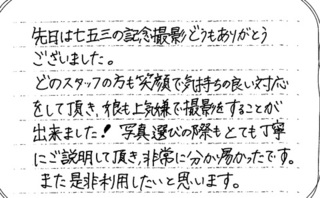 先日は七五三の記念撮影どうもありがとう
ございました。
どのスタッフの方も笑顔で気持ちの良い対応
をして頂き、娘も上気嫌で撮影をすることが
出来ました！写真選びの際もとても丁寧
にご説明して頂き、非常に分か易かったです。
また是非利用したいと思います。